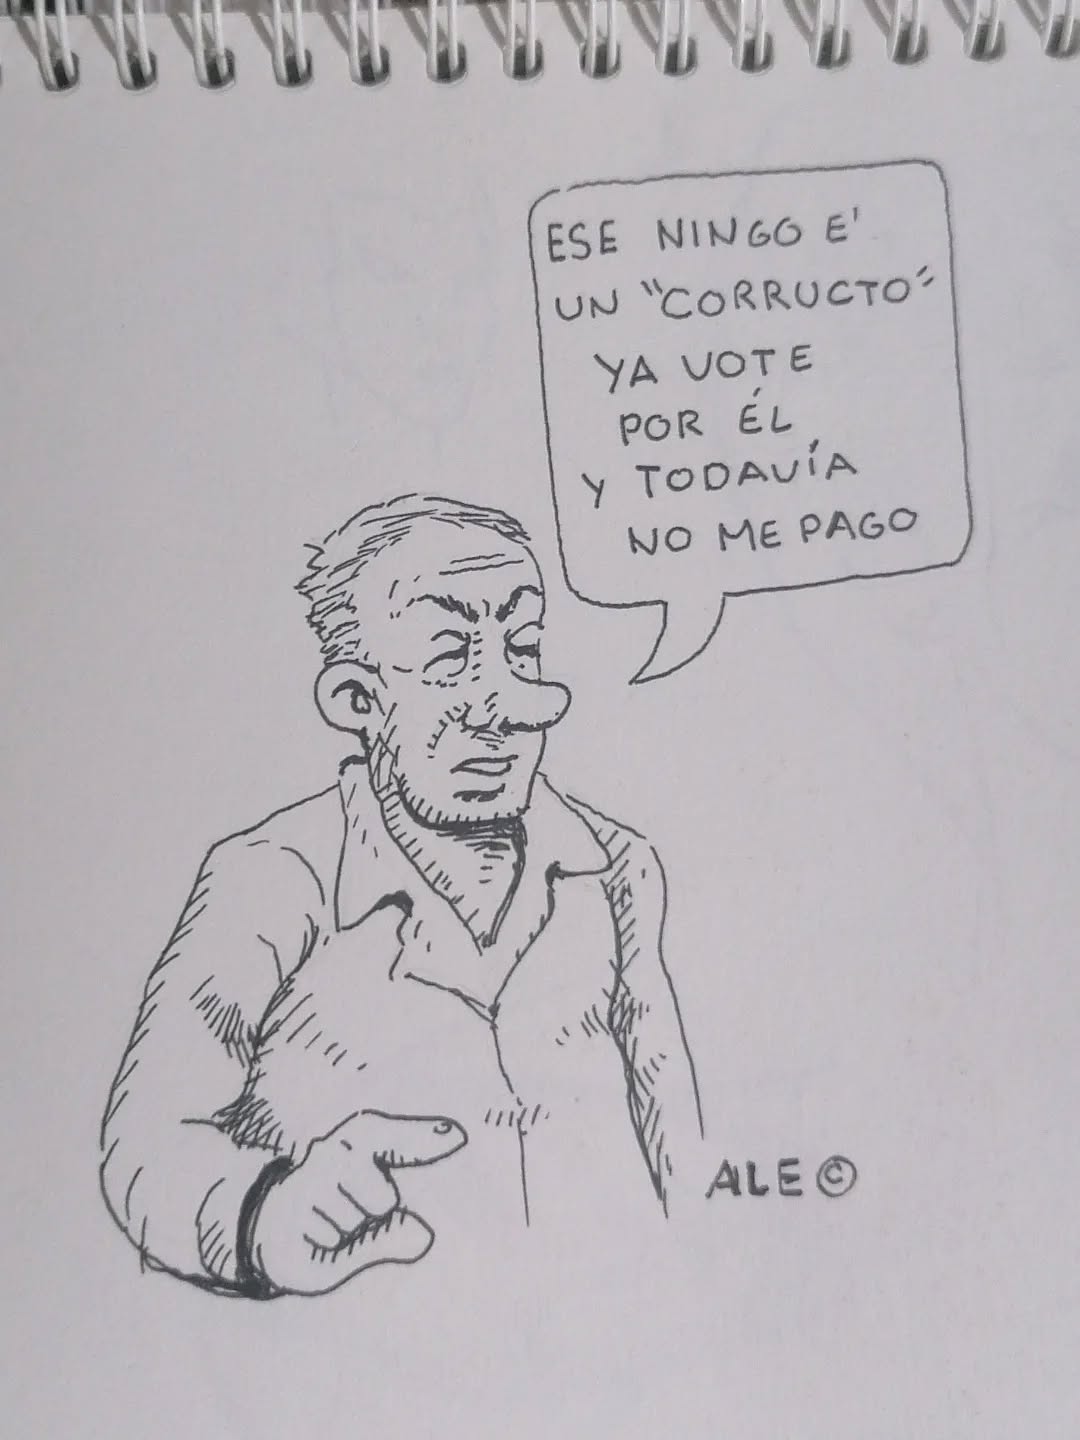 ESE NINGO E'
UN "CORRUCTO"
YA VOTE
POR ÉL
Y TODAVÍA
NO ME PAGO
ALE ©